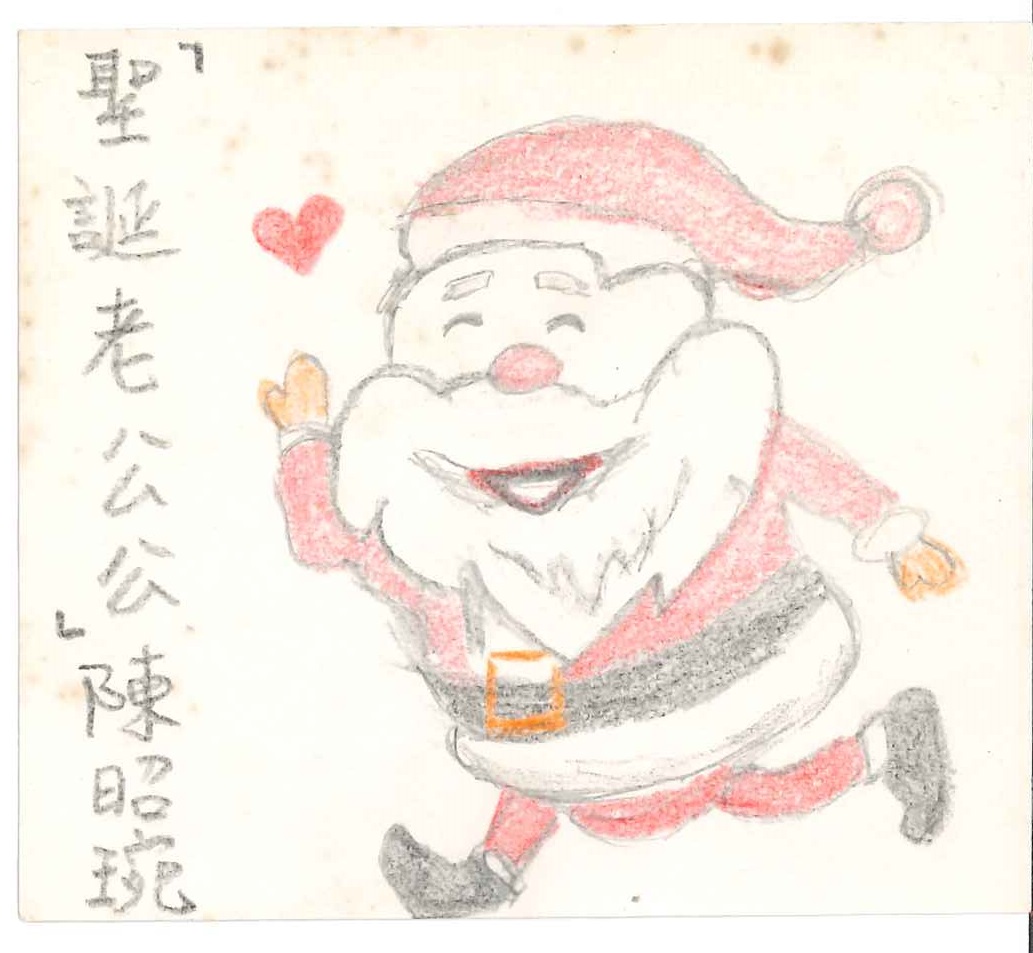 「聖誕老公公」陳昭琬